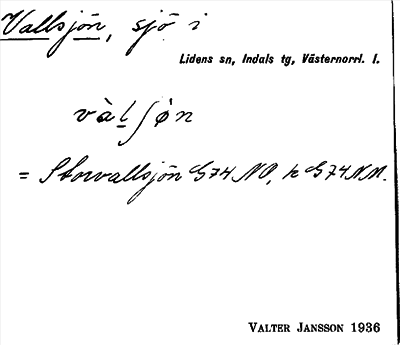 Vallsjön, sjö i
Lidens sn, Indals tg, Västernorrl. l.
và l ʃ ø̀ n
= Storvallsjön G74 NO, k G74 NN.
VALTER JANSSON 1936